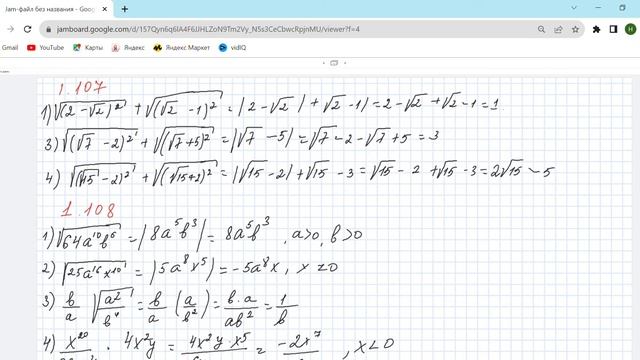 Jam-файл без названия - Goo
jamboard.google.com/d/157Qyn6q6IA4F6JJHLZoN9Tm2Vy_N5s3CeCbwcRpjnMU/viewer?f=4
YouTube Карты Яндекс Яндекс Маркет vidIQ
1.107
1) √(2-√2)² + √(√2 -1)² = |2-√2| + √2-1| = 2-√2 +√2-1=1
3) √(√7 -2)² + √(√7+5)² = |√7 -5| = √7 -2-√7+5 =3
4) √(√15 -2)² + √(√15+2)² = |√15 -2| + √15 -3 = √15 -2 +√15 -3 = 2√15 -5
1.108
1) √64a¹⁰b⁶ = |8a⁵b³| = 8a⁵b³, a>0, b>0
2) √25a¹⁶x¹⁰ = |5a⁸x⁵| = -5a⁸x, x<0
3) b/a √a²/b⁴ = b/a (a/b²) = b·a/ab² = 1/b
4) x²⁰ · 4x²y = 4x²y·x⁵ = -2x⁷, x<0